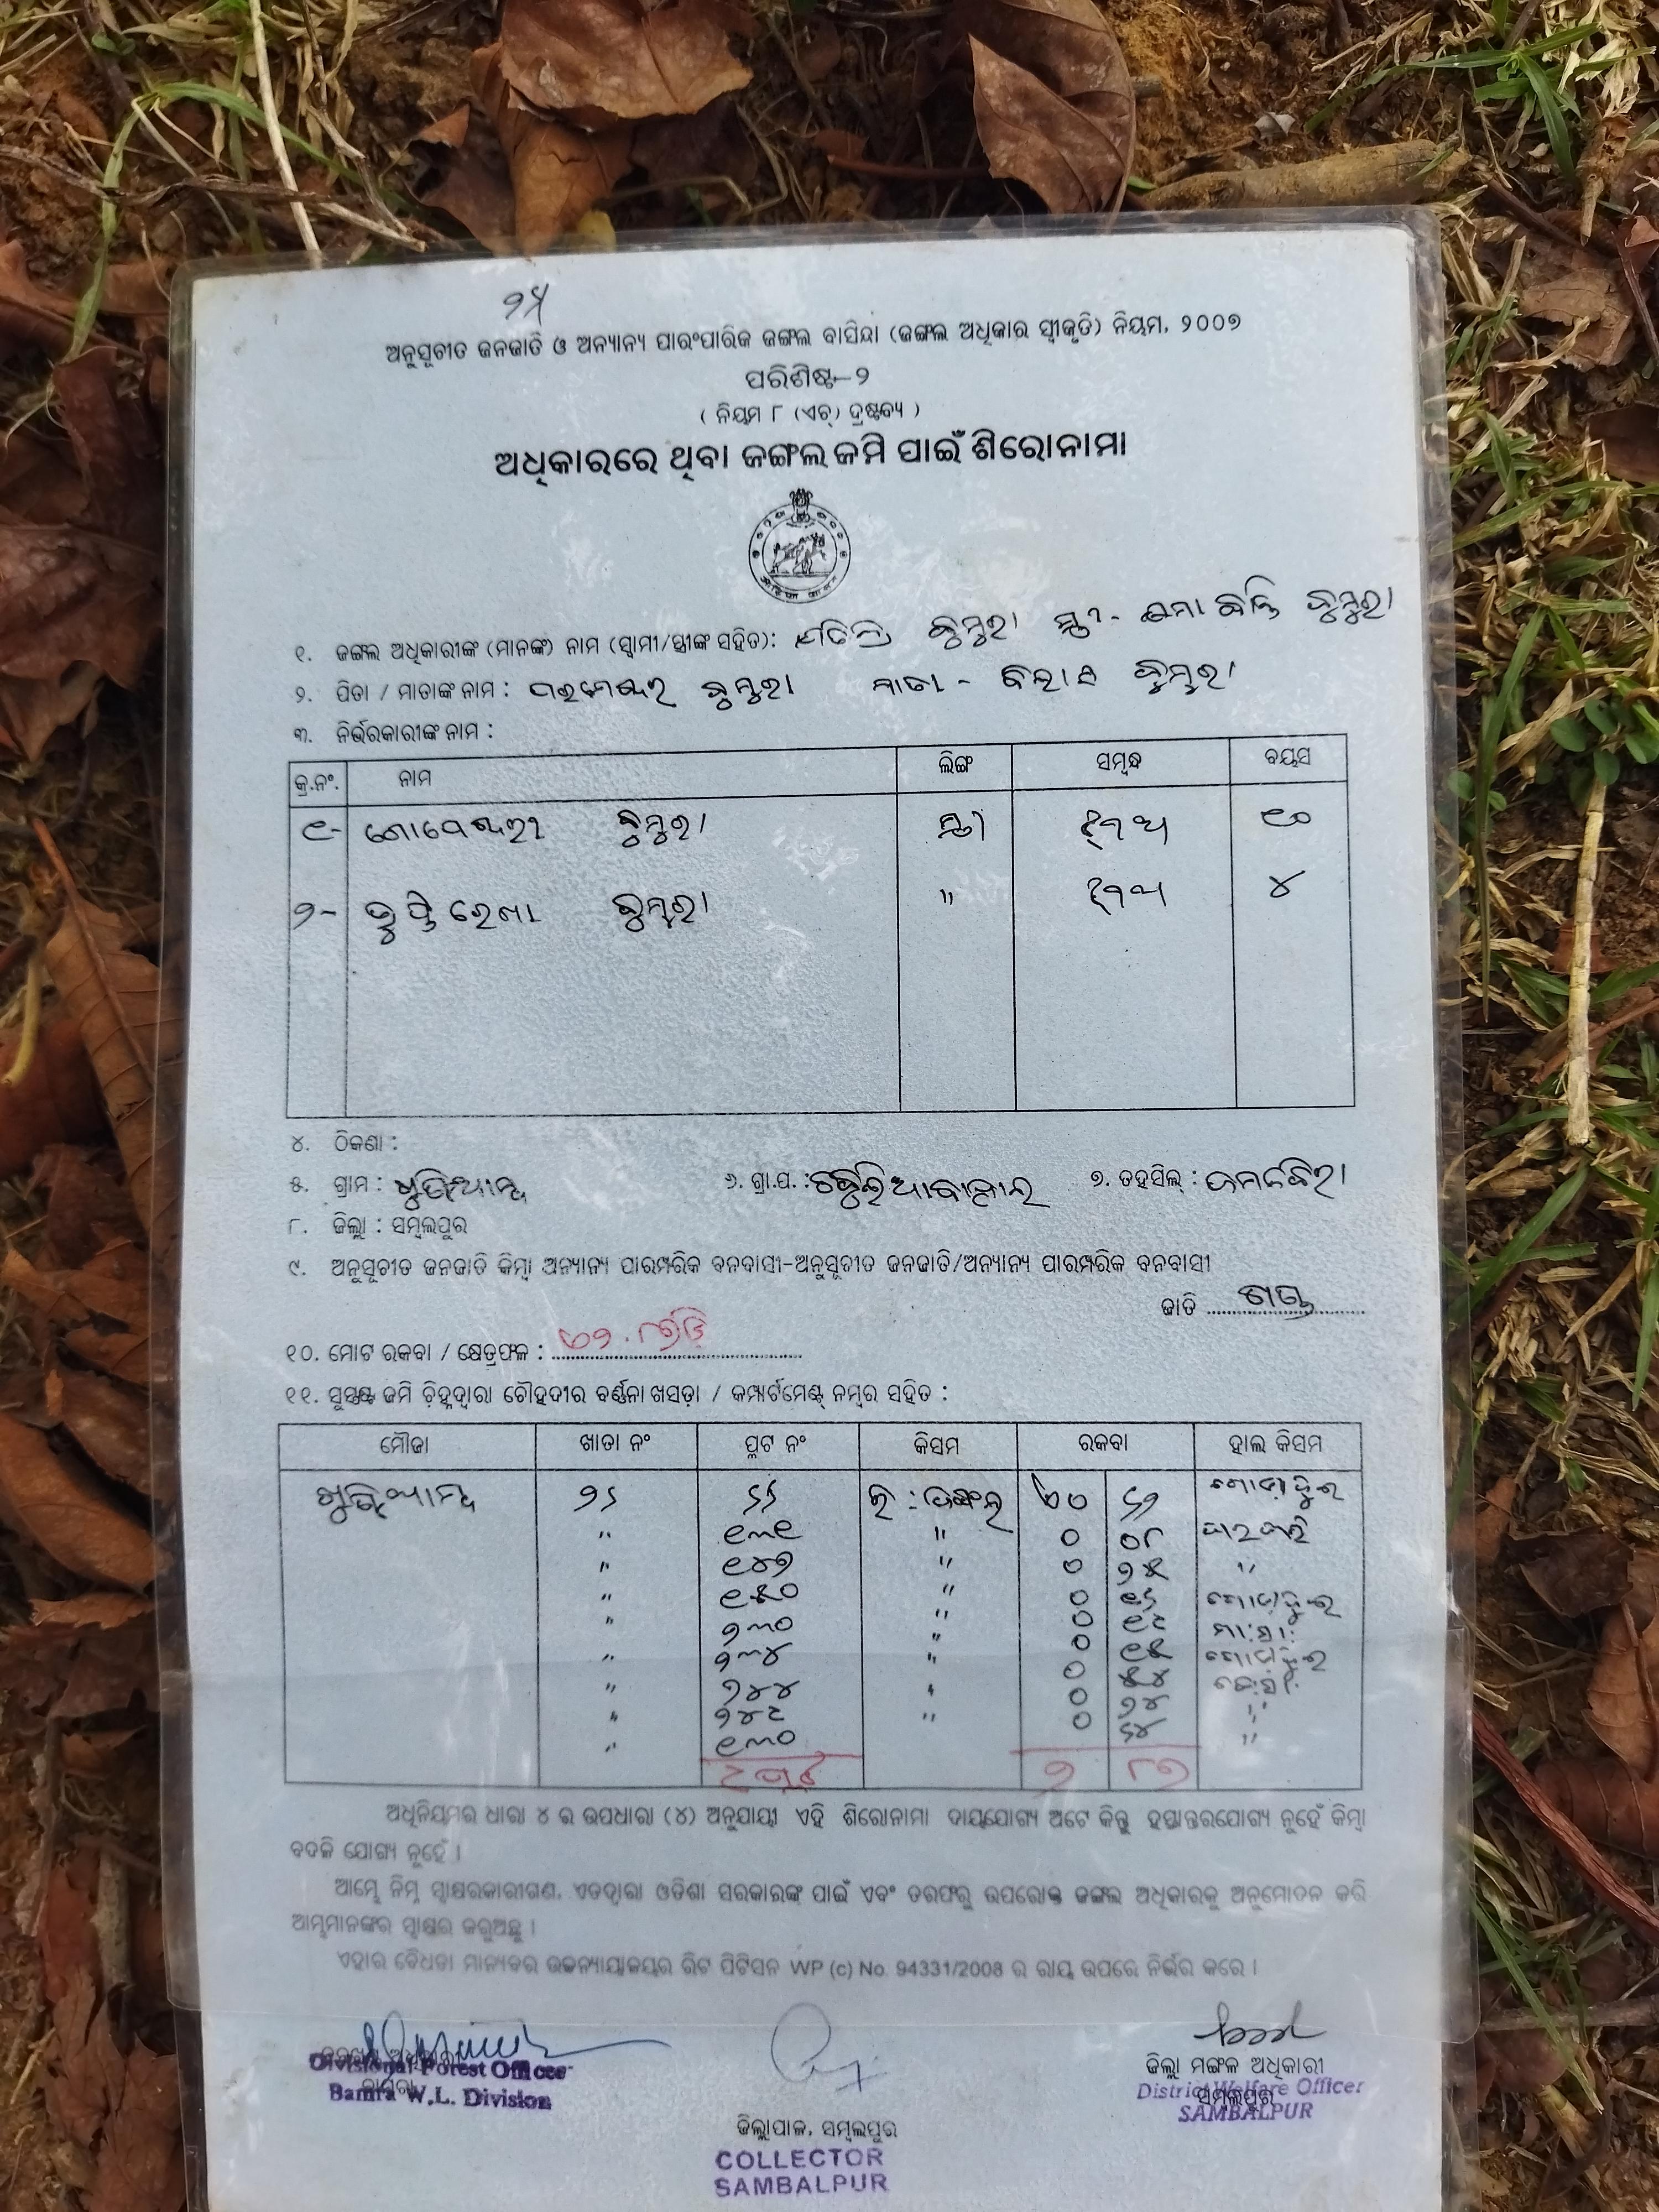 ୨୪
ଅନୁସୂଚୀତ ଜନଜାତି ଓ ଅନ୍ୟାନ୍ୟ ପାରଂପାରିକ ଜଙ୍ଗଲ ବାସିନ୍ଦା (ଜଙ୍ଗଲ ଅଧିକାର ସ୍ୱୀକୃତି) ନିୟମ, ୨୦୦୭
ପରିଶିଷ୍ଟ-୨
( ନିୟମ ୮ (ଏଚ୍) ଦ୍ରଷ୍ଟବ୍ୟ )
ଅଧିକାରରେ ଥିବା ଜଙ୍ଗଲ ଜମି ପାଇଁ ଶିରୋନାମା
୧. ଜଙ୍ଗଲ ଅଧିକାରୀଙ୍କ (ମାନଙ୍କ) ନାମ (ସ୍ୱାମୀ/ସ୍ତ୍ରୀଙ୍କ ସହିତ): କୁମୁରା ସ୍ତ୍ରୀ- କୁମୁରା
୨. ପିତା / ମାତାଙ୍କ ନାମ : ପରମେଶ୍ୱର କୁମୁରା ମାତା - କୁମୁରା
୩. ନିର୍ଭରକାରୀଙ୍କ ନାମ :
କ୍ର.ନଂ. ନାମ ଲିଙ୍ଗ ସମ୍ବନ୍ଧ ବୟସ
୧- ଗୋପେଶ୍ୱରୀ କୁମୁରା ସ୍ତ୍ରୀ ଝିଅ ୧୦
୨- ତୃପ୍ତିରେଖା କୁମୁରା " ଝିଅ ୪
୪. ଠିକଣା :
୫. ଗ୍ରାମ : ୬. ଗ୍ରା.ପ. : ୭. ତହସିଲ୍ : ଜମନକିରା
୮. ଜିଲ୍ଲା : ସମ୍ବଲପୁର
୯. ଅନୁସୂଚୀତ ଜନଜାତି କିମ୍ବା ଅନ୍ୟାନ୍ୟ ପାରମ୍ପରିକ ବନବାସୀ-ଅନୁସୂଚୀତ ଜନଜାତି/ଅନ୍ୟାନ୍ୟ ପାରମ୍ପରିକ ବନବାସୀ
ଜାତି ଗଣ୍ଡ
୧୦. ମୋଟ ରକବା / କ୍ଷେତ୍ରଫଳ :
୧୧. ସୁସ୍ପଷ୍ଟ ଜମି ଚିହ୍ନଦ୍ୱାରା ଚୌହଦୀର ବର୍ଣ୍ଣନା ଖସଡ଼ା / କମ୍ପାର୍ଟମେଣ୍ଟ୍ ନମ୍ବର ସହିତ :
ମୌଜା ଖାତା ନଂ ପ୍ଳଟ ନଂ କିସମ ରକବା ହାଲ କିସମ
୨୬ ୬୬ ଜଙ୍ଗଲ ୬୨
" ୧୩୧ " ୦ ୦୮
" ୧୪୭ " ୦ ୨୫ "
" ୧୫୦ " ୦ ୧୬
" ୨୩୦ " ୦ ୧୯
" ୨୩୪ " ୦ ୧୫
" ୨୪୪ " ୦ ୫୪
" ୨୪୯ " ୦ ୨୪ "
" ୧୩୦ " ୦ ୬୪ "
୯ ପ୍ଲଟ ୨ ୮୭
ଅଧିନିୟମର ଧାରା ୪ ର ଉପଧାରା (୪) ଅନୁଯାୟୀ ଏହି ଶିରୋନାମା ଦାୟଯୋଗ୍ୟ ଅଟେ କିନ୍ତୁ ହସ୍ତାନ୍ତରଯୋଗ୍ୟ ନୁହେଁ କିମ୍ବା
ବଦଳି ଯୋଗ୍ୟ ନୁହେଁ ।
ଆମ୍ଭେ ନିମ୍ନ ସ୍ୱାକ୍ଷରକାରୀଗଣ, ଏତଦ୍ୱାରା ଓଡିଶା ସରକାରଙ୍କ ପାଇଁ ଏବଂ ତରଫରୁ ଉପରୋକ୍ତ ଜଙ୍ଗଲ ଅଧିକାରକୁ ଅନୁମୋଦନ କରି
ଆମ୍ଭମାନଙ୍କର ସ୍ୱାକ୍ଷର କରୁଅଛୁ ।
ଏହାର ବୈଧତା ମାନ୍ୟବର ଉଚ୍ଚନ୍ୟାୟାଳୟର ରିଟ ପିଟିସନ WP (c) No. 94331/2008 ର ରାୟ ଉପରେ ନିର୍ଭର କରେ ।
Divisional Forest Officer
Bamra W.L. Division
ଜିଲ୍ଲା ମଙ୍ଗଳ ଅଧିକାରୀ
ସମ୍ବଲପୁର
District Welfare Officer
SAMBALPUR
ଜିଲ୍ଲାପାଳ, ସମ୍ବଲପୁର
COLLECTOR
SAMBALPUR